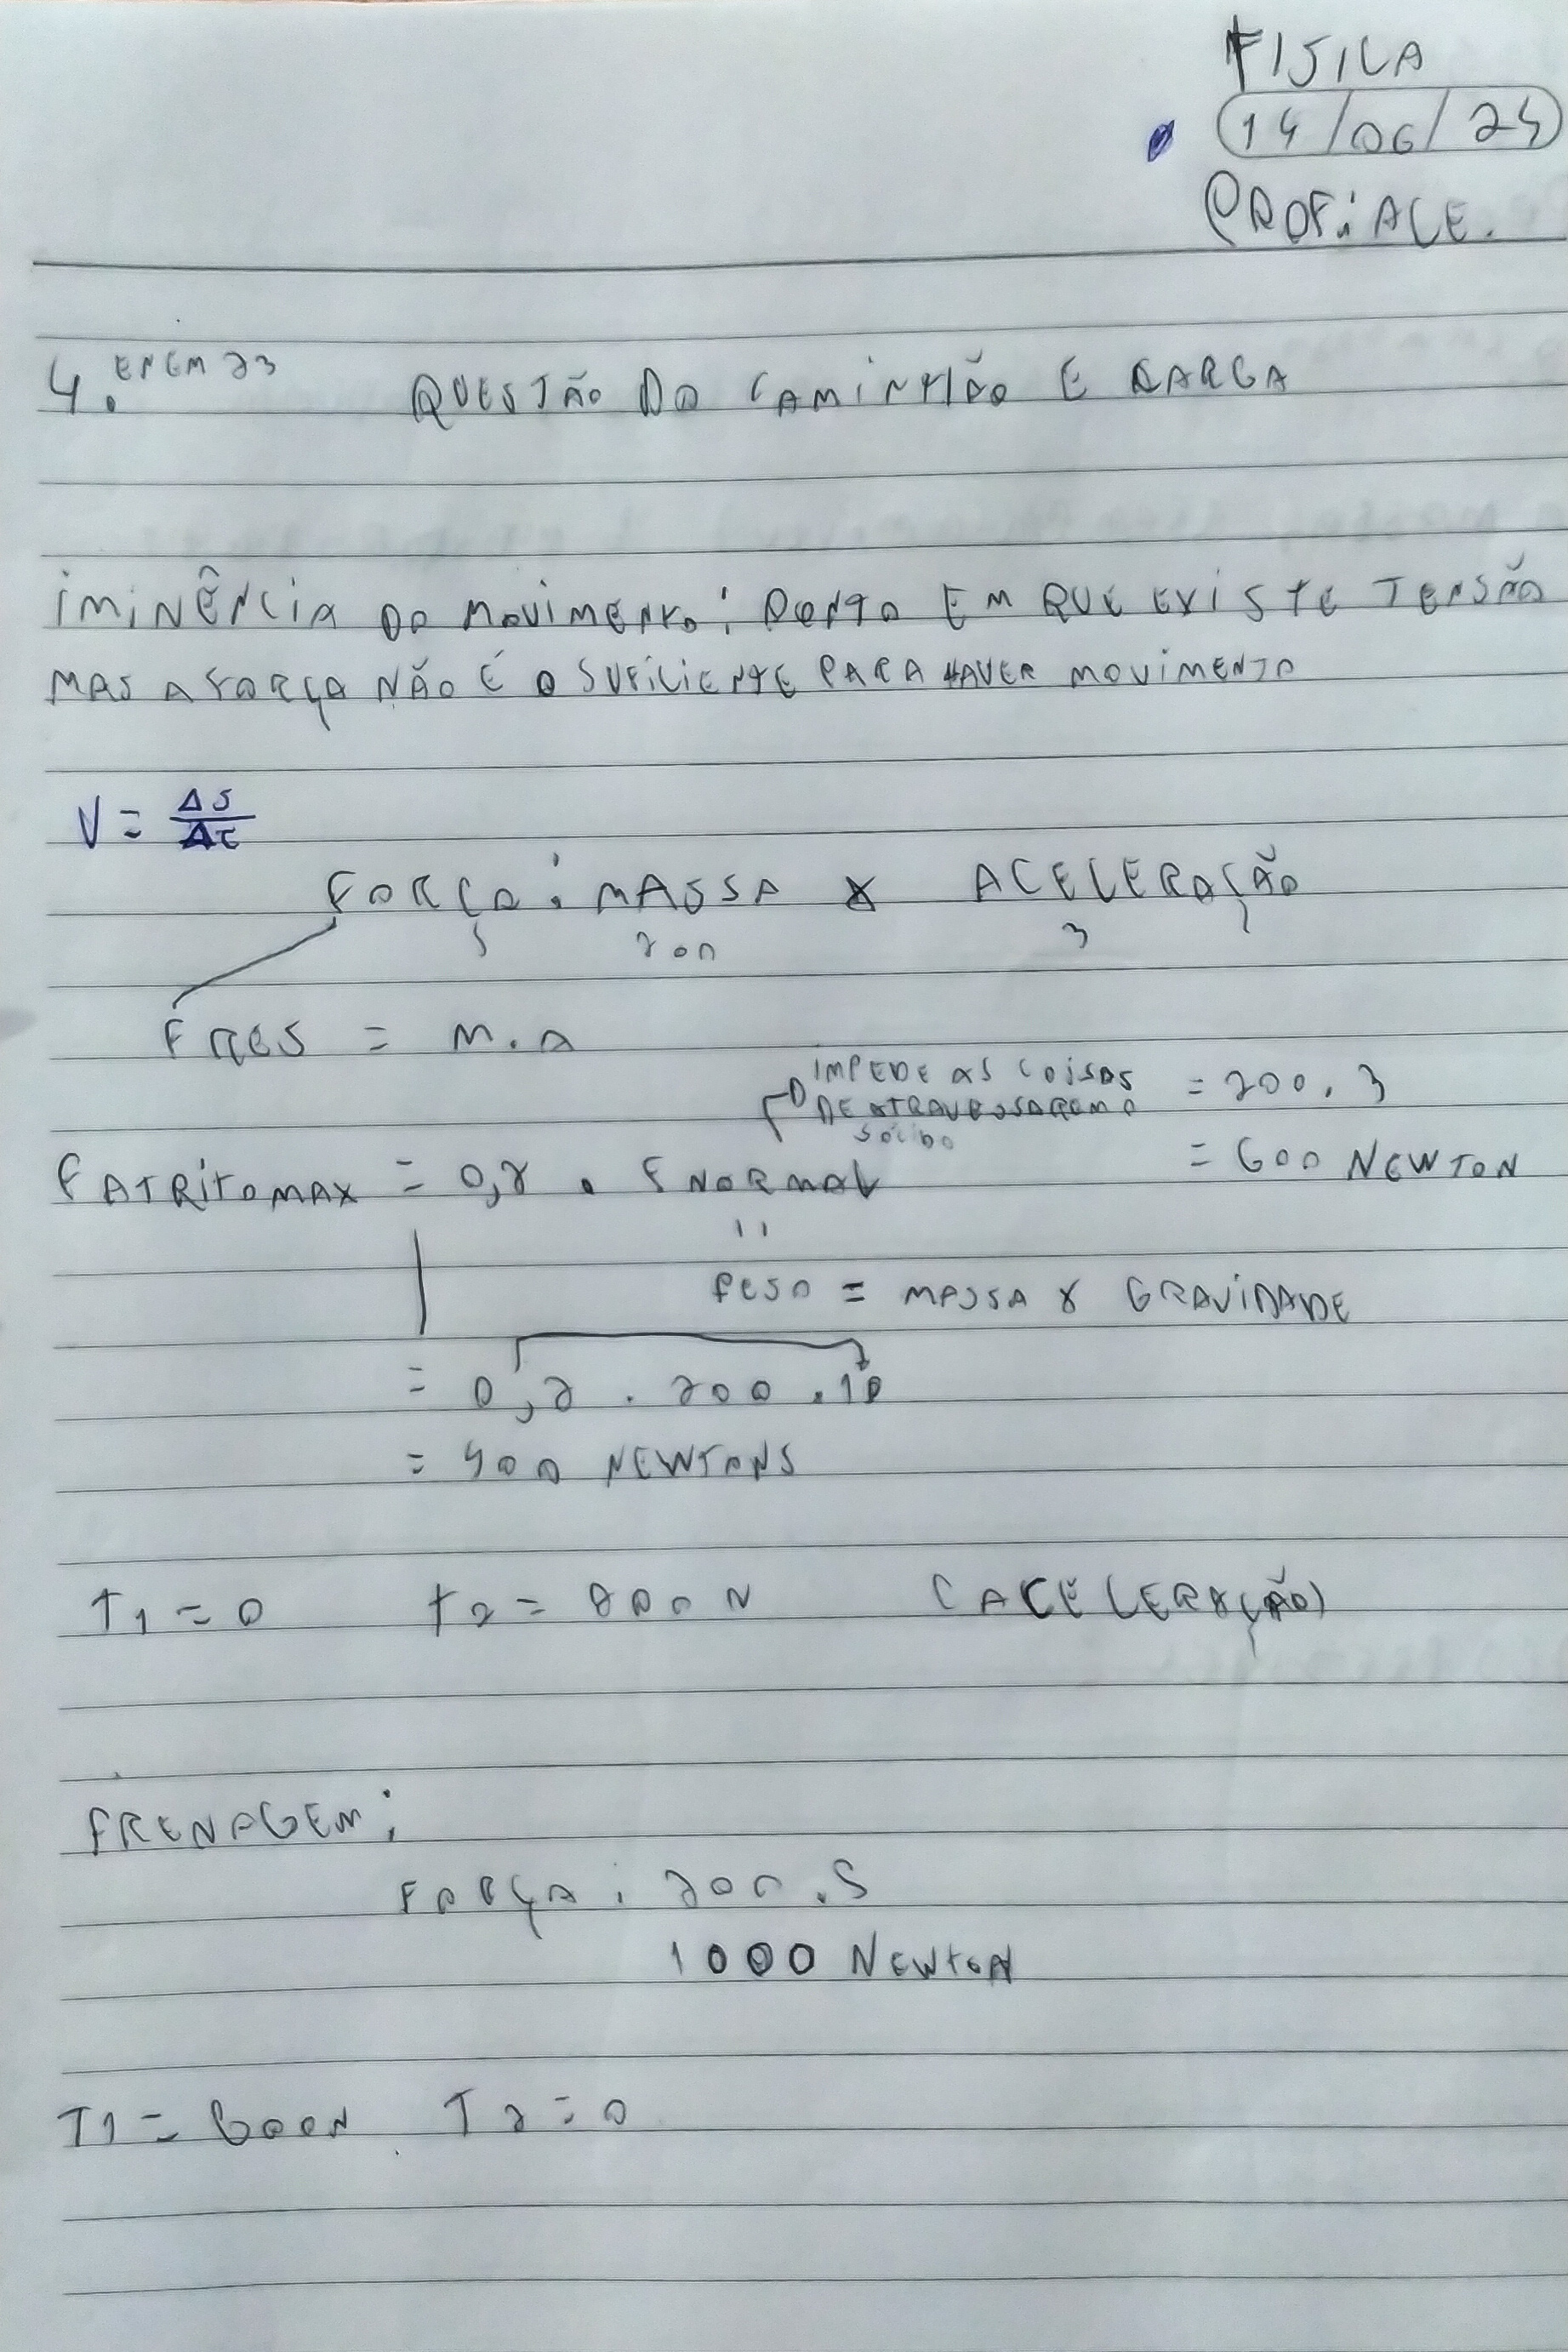 FISICA
14/06/24
PROF: ALE.
4. ENEM 23 QUESTÃO DO CAMINHÃO E CARGA
IMINÊNCIA DO MOVIMENTO: PONTO EM QUE EXISTE TENSÃO
MAS A FORÇA NÃO É O SUFICIENTE PARA HAVER MOVIMENTO
V = ΔS/Δt
FORÇA: MASSA X ACELERAÇÃO
5 200 3
FRES = M.A
IMPEDE AS COISAS = 200.3
DE ATRAVESSAREM O
SÓLIDO
= 600 NEWTON
FATRITOMAX = 0,2 . FNORMAL
11
PESO = MASSA X GRAVIDADE
= 0,2 . 200 .10
= 400 NEWTONS
T1 = 0 T2 = 200N (ACELERAÇÃO)
FRENAGEM:
FORÇA: 200.5
1000 NEWTON
T1 = 600N T2 = 0